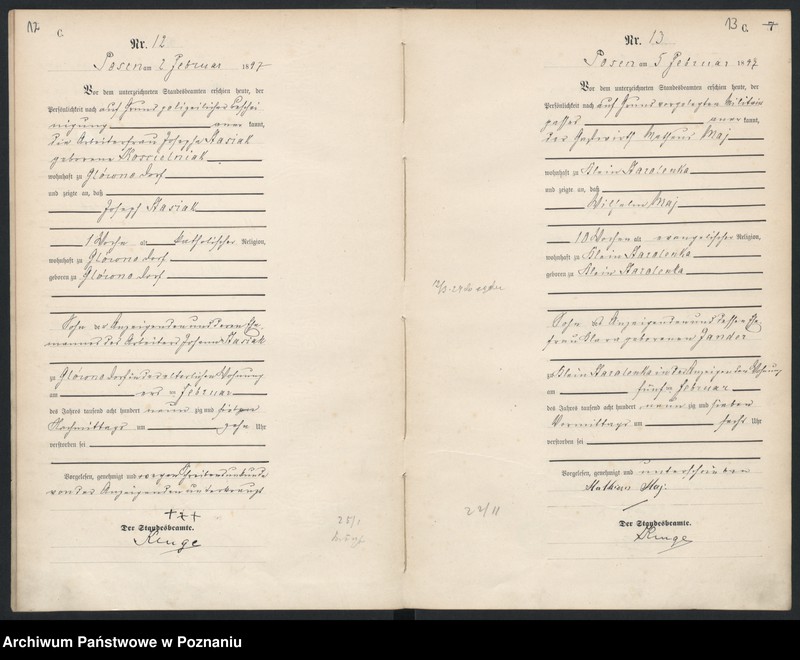 12
C.
Nr. 12
Posen am 2 Februar 1897
Vor dem unterzeichneten Standesbeamten erschien heute, der
Persönlichkeit nach auf Grund polizeilicher Beschei
nigung anerkannt,
die Arbeiterfrau Josepha Stasiak
geborene Koscielniak
wohnhaft zu Glówno Dorf
und zeigte an, daß
Joseph Stasiak
1 Woche alt katholischer Religion,
wohnhaft zu Glówno Dorf
geboren zu Glówno Dorf
Sohn der Anzeigenden und deren Ehe
mannes des Arbeiters Johann Stasiak
zu Glówno Dorf in der elterlichen Wohnung
am Februar
des Jahres tausend acht hundert neun zig und sieben
Nachmittags um zehn Uhr
verstorben sei
Vorgelesen, genehmigt und wegen Schreibensunkunde
von der Anzeigenden unterkreuzt
+++
Der Standesbeamte.
Runge
25/1
13 C. 7
Nr. 13
Posen am 5 Februar 1897
Vor dem unterzeichneten Standesbeamten erschien heute, der
Persönlichkeit nach auf Grund vorgelegten Militair
passes anerkannt,
der Gastwirth Matheus Maj
wohnhaft zu Klein Starolenka
und zeigte an, daß
Wilhelm Maj
10 Wochen alt evangelischer Religion,
wohnhaft zu Klein Starolenka
geboren zu Klein Starolenka
Sohn des Anzeigenden und dessen Ehe
frau Klara geborenen Jander
zu Klein Starolenka in des Anzeigenden Wohnung
am fünften Februar
des Jahres tausend acht hundert neun zig und sieben
Vormittags um sechs Uhr
verstorben sei
Vorgelesen, genehmigt und unterschrieben
Mathäus Maj.
Der Standesbeamte.
Runge
22/11
Archiwum Państwowe w Poznaniu